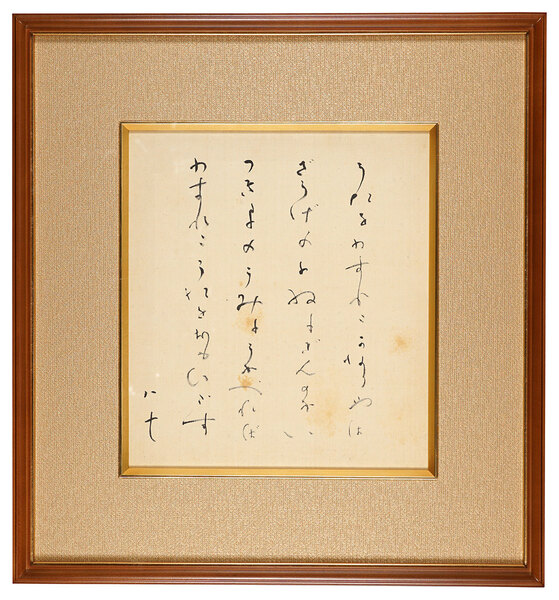 うたをわすれたかなりやは
ざうげのふねにぎんのかい
つきよのうみにうかべれば
わすれたうたをおもひだす
八十